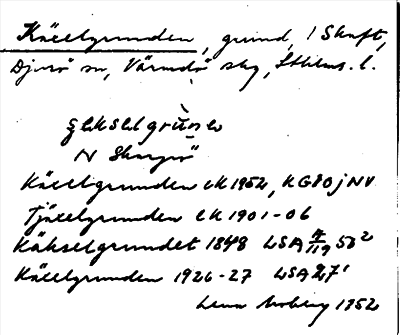 Käxelgrunden, grund, 1 Skaft,
Djurö sn, Värmdö skg, Sthlms. l.
N Skarpö
Käxelgrunden EK 1952, KG80jNV
Tjäxelgrunden EK 1901-06
Käkselgrundet 1848 LSA 50²
Käxelgrunden 1926-27 LSA
Moberg 1952